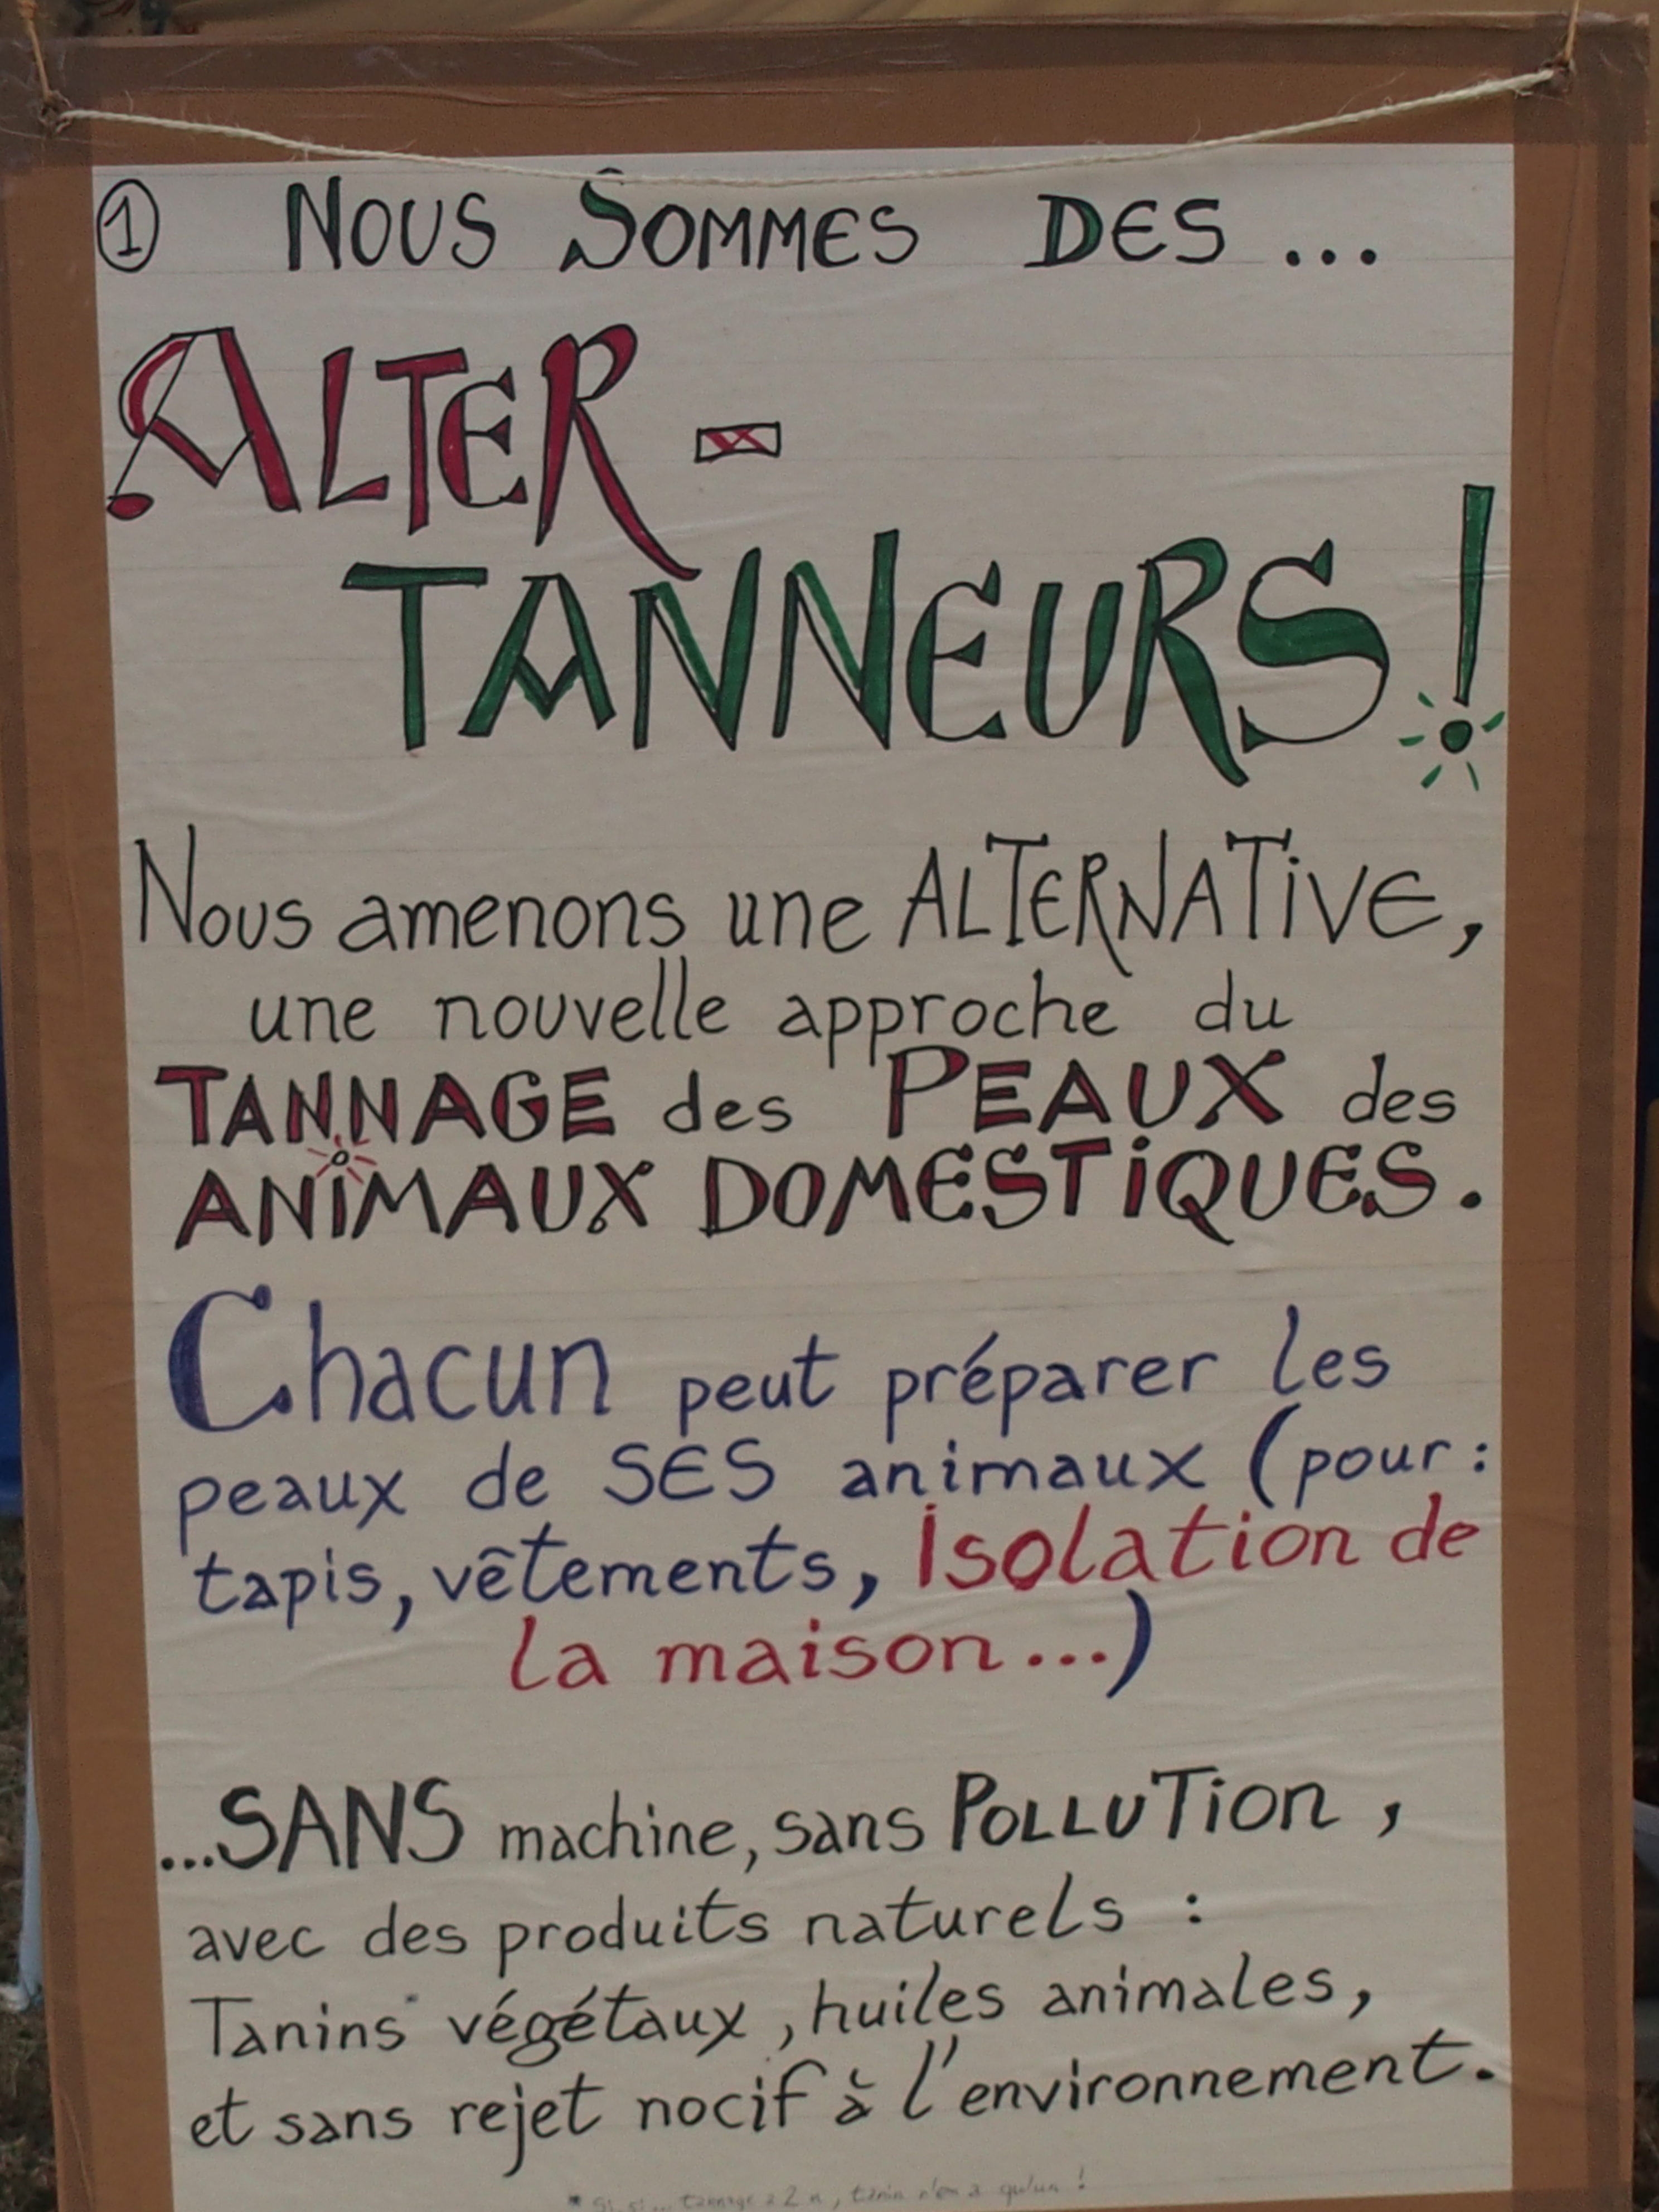 ① NOUS SOMMES DES ...
ALTER -
TANNEURS !
Nous amenons une ALTERNATiVE,
une nouvelle approche du
TANNAGE des PEAUX des
ANiMAUX DOMESTiQUES.
Chacun peut préparer les
peaux de SES animaux (pour :
tapis, vêtements, Isolation de
la maison...)
...SANS machine, sans POLLUTion,
avec des produits naturels :
Tanins* végétaux, huiles animales,
et sans rejet nocif à l'environnement.
* Si, si... tannage a 2 n, tanin n'en a qu'un !